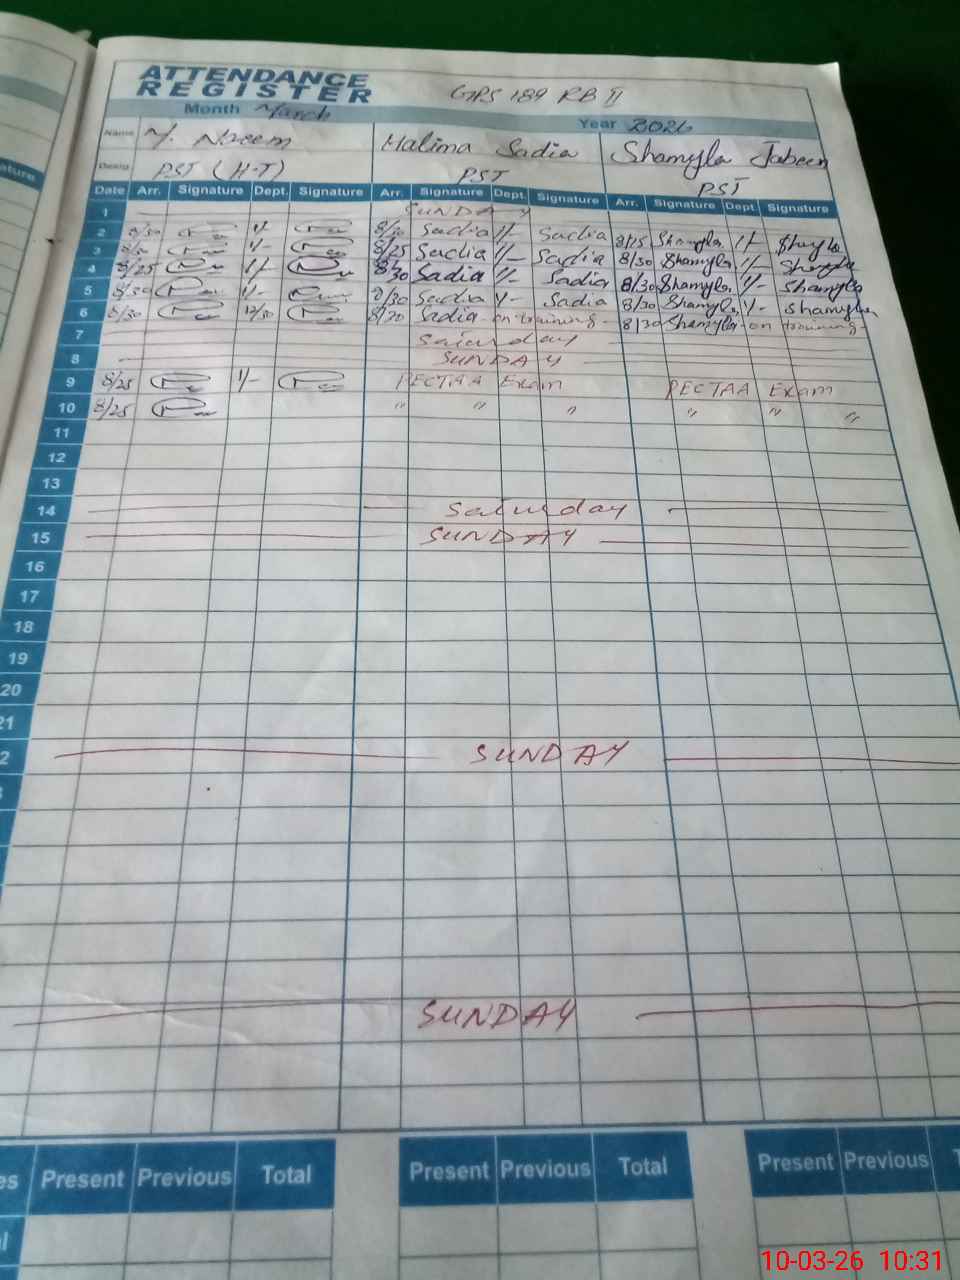 ATTENDANCE
REGISTER
GPS 189 RB II
Month March Year 2026
Name M. Naeem Halima Sadia Shamyla Jabeen
Desig PST (H-T) PST PST
Date Arr. Signature Dept. Signature Arr. Signature Dept. Signature Arr. Signature Dept Signature
1 SUNDAY
2 8/30 1/- 8/30 Sadia 1/- Sadia 8/25 Shamyla 1/- Shamyla
3 1/- 8/25 Sadia 1/- Sadia 8/30 Shamyla 1/- Shamyla
4 8/25 1/- 8/30 Sadia 1/- Sadia 8/30 Shamyla 1/- Shamyla
5 8/30 1/- 8/30 Sadia 1/- Sadia 8/30 Shamyla 1/- Shamyla
6 8/30 12/30 8/30 Sadia - on training - 8/30 Shamyla - on training -
7 Saturday
8 SUNDAY
9 8/25 1/- PECTAA Exam PECTAA Exam
10 8/25 " " " " " "
11
12
13
14 Saturday
15 SUNDAY
16
17
18
19
20
21
2 SUNDAY
SUNDAY
es Present Previous Total Present Previous Total Present Previous T
al
10-03-26 10:31